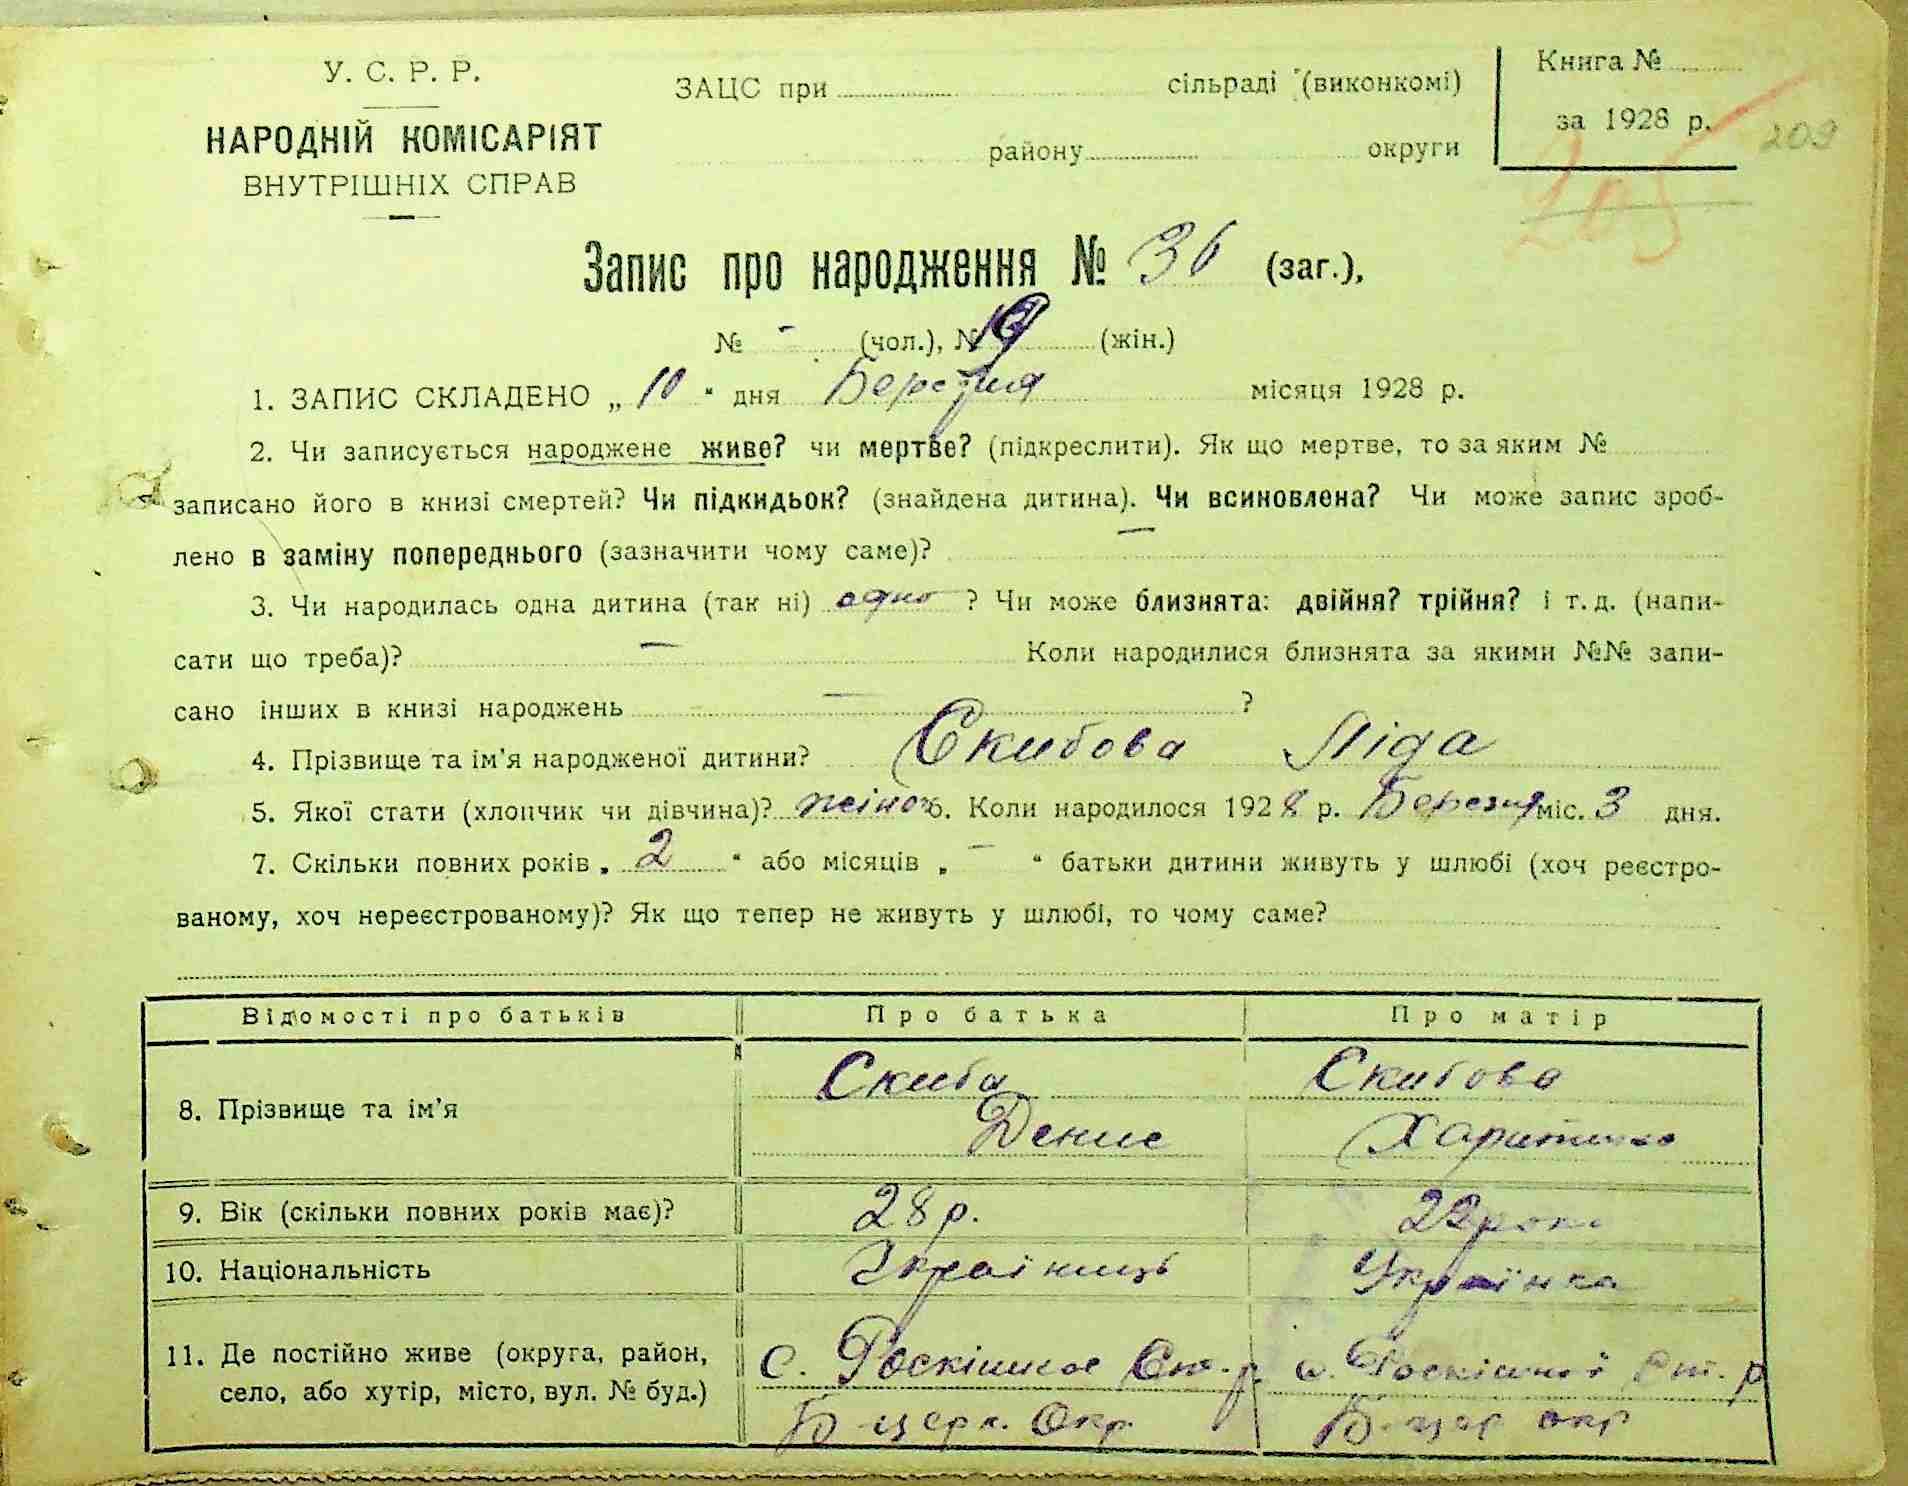 У. С. Р. Р.
НАРОДНІЙ КОМІСАРІЯТ
ВНУТРІШНІХ СПРАВ
ЗАЦС при сільраді (виконкомі)
району округи
Книга №
за 1928 р.
209
205
Запис про народження № 36 (заг.),
№ - (чол.), № 19 (жін.)
1. ЗАПИС СКЛАДЕНО „ 10 “ дня Березня місяця 1928 р.
2. Чи записується народжене живе? чи мертве? (підкреслити). Як що мертве, то за яким №
записано його в книзі смертей? Чи підкидьок? (знайдена дитина). Чи всиновлена? Чи може запис зроб-
лено в заміну попереднього (зазначити чому саме)? —
3. Чи народилась одна дитина (так ні) одно ? Чи може близнята: двійня? трійня? і т. д. (напи-
сати що треба)? — Коли народилися близнята за якими №№ запи-
сано інших в книзі народжень — ?
4. Прізвище та ім'я народженої дитини? Скибова Ліда
5. Якої стати (хлопчик чи дівчина)? жіноч 6. Коли народилося 1928 р. Березня міс. 3 дня.
7. Скільки повних років „ 2 “ або місяців „ - “ батьки дитини живуть у шлюбі (хоч реєстро-
ваному, хоч нереєстрованому)? Як що тепер не живуть у шлюбі, то чому саме?
Відомості про батьків Про батька Про матір
8. Прізвище та ім'я
Скиба
Денис
Скибова
9. Вік (скільки повних років має)? 28 р.
10. Національність Україниць Українка
11. Де постійно живе (округа, район,
село, або хутір, місто, вул. № буд.)
с. Ст. р.
Б-церк. Окр.
с. Ст. р
Б-цер окр